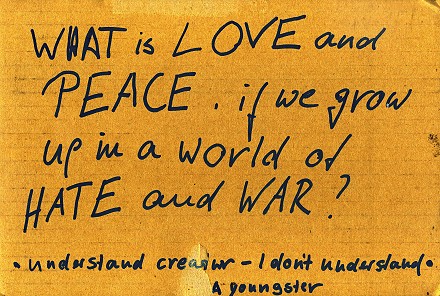 WHAT is LOVE and
PEACE. if we grow
up in a world of
HATE and WAR?
• understand creatur - I don't understand •
A youngster